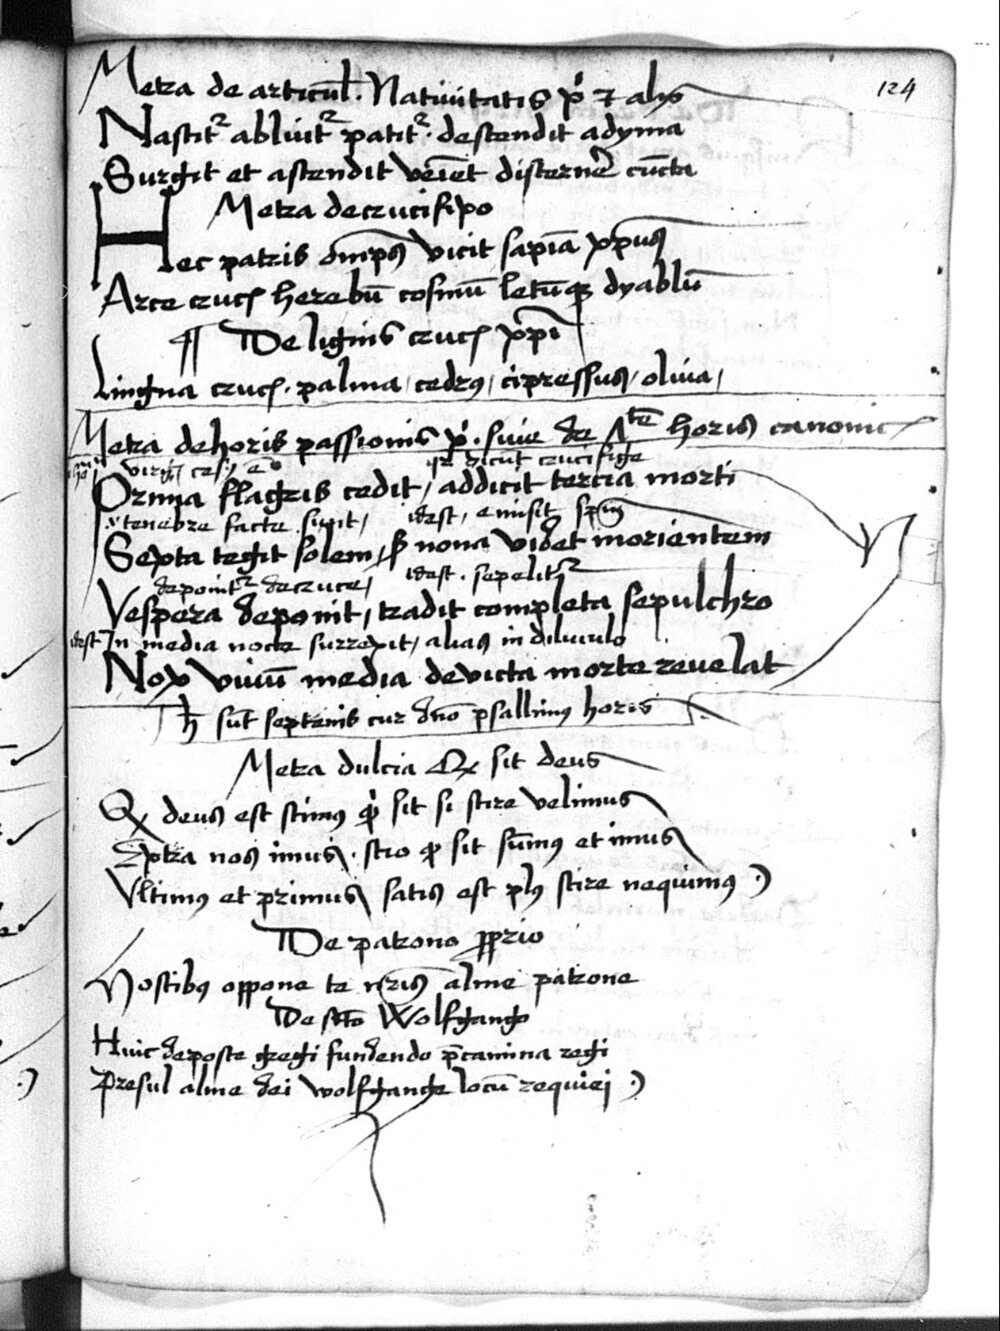 124
Metra de articul. Nativitatis
Nascitr abluitr patitr. descendit adyma
Surgit et ascendit veniet discernere cūcta
Metra de crucifixo
Hec patris omps vicit sapīa xpus
Arce cruc herebū cosmū letūq dyablū
¶ De lignis cruc xpi
Lingna cruc. palma, cedrus, cipressus, oliva,
Metra de horis passionis horis canonic
virg cesus ē dicit crucifige
Prima flagris cedit, addicit tercia morti
tenebre facte sunt, idest, emisit spm
Sexta tegit solem, nona videt morientem
deponitr de cruce, idest. sepelitr
Vespera deponit, tradit completa sepulchro
idest In media nocte surrexit, alias in diluculo
Nox vivū media devicta morte revelat
H sūt septenis cur dno psallim horis
Metra dulcia Q sit deus
Q deus est scimus sit si scire velimus
Extra nos imus. scio q sit sūmus et imus
Ultimus et primus satis est pl scire nequimus
De patrono pprio
Hostibus oppone te nris alme patrone
De scto Wolfgango
Huic deposce gregi fundendo pcamina regi
Presul alme dei wolfgange locū requiei